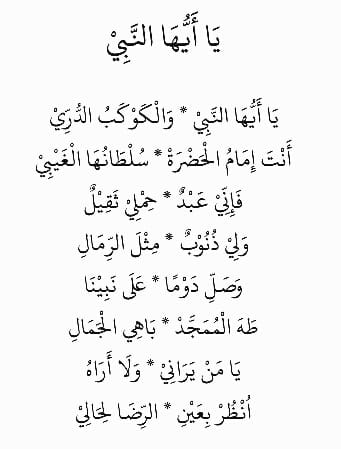 يَا أَيُّهَا النَّبِيْ
يَا أَيُّهَا النَّبِيْ * وَالْكَوْكَبُ الدُّرِّيْ
أَنْتَ إِمَامُ الْحَضْرَةْ * سُلْطَانُهَا الْغَيْبِيْ
فَإِنِّيْ عَبْدٌ * حِمْلِيْ ثَقِيْلٌ
وَلِيْ ذُنُوْبٌ * مِثْلَ الرِّمَالِ
وَصَلِّ دَوْمًا * عَلَى نَبِيْنَا
طَهَ الْمُمَجَّدْ * بَاهِي الْجَمَالِ
يَا مَنْ يَرَانِيْ * وَلَا أَرَاهُ
اُنْظُرْ بِعَيْنِ * الرِّضَا لِحَالِيْ